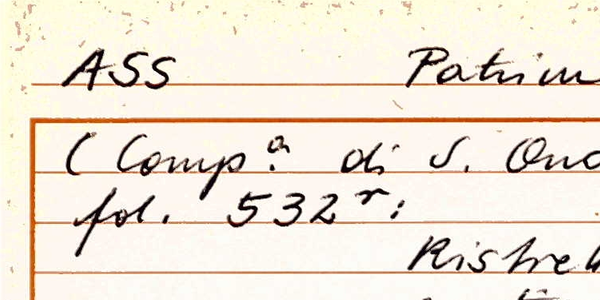 ASS Patrim
(Comp.a di S. Ono
fol. 532r:
Ristret